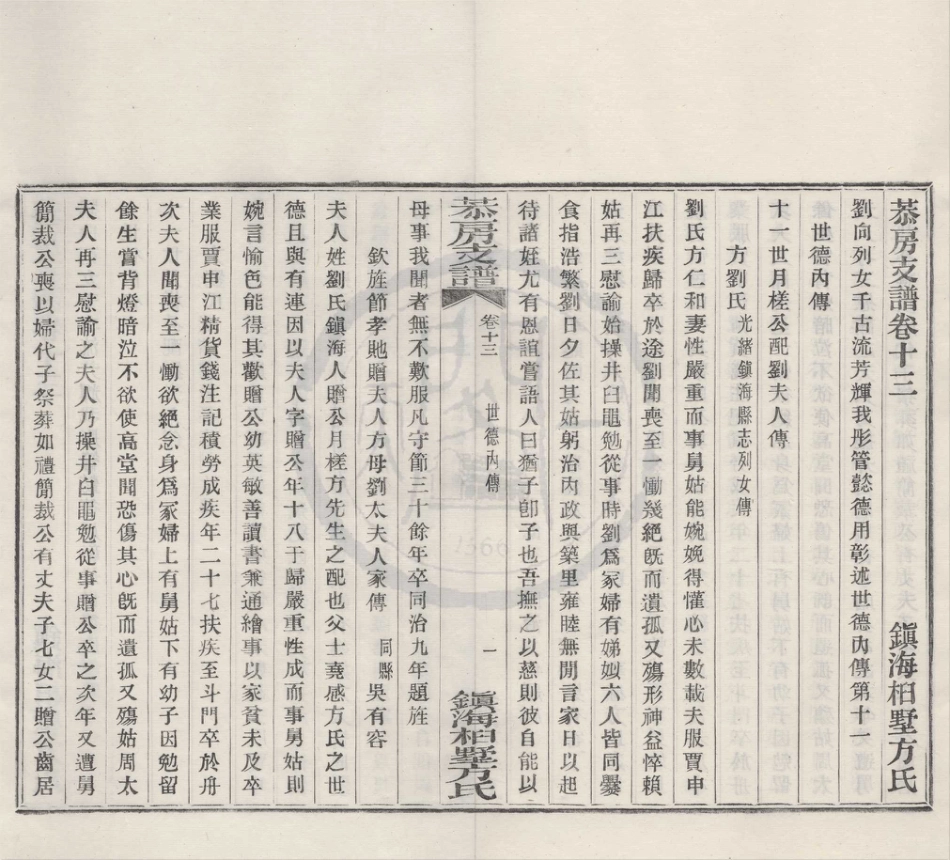 恭房支譜卷十三 鎮海桕墅方氏
劉向列女千古流芳輝我彤管懿德用彰述世德內傳第十一
世德內傳
十一世月槎公配劉夫人傳
方劉氏 光緒鎮海縣志列女傳
劉氏方仁和妻性嚴重而事舅姑能婉娩得懽心未數載夫服賈申
江扶疾歸卒於途劉聞喪至一慟幾絕旣而遺孤又殤形神益悴賴
姑再三慰諭始操井臼黽勉從事時劉爲冢婦有娣姒六人皆同爨
食指浩繁劉日夕佐其姑躬治內政與築里雍睦無閒言家日以起
待諸姪尤有恩誼嘗語人曰猶子卽子也吾撫之以慈則彼自能以
恭房支譜 卷十三 世德內傳 一 鎮海桕墅方氏
母事我聞者無不歎服凡守節三十餘年卒同治九年題旌
欽旌節孝貤贈夫人方母劉太夫人家傳 同縣吳有容
夫人姓劉氏鎮海人贈公月槎方先生之配也父士堯感方氏之世
德且與有連因以夫人字贈公年十八于歸嚴重性成而事舅姑則
婉言愉色能得其歡贈公幼英敏善讀書兼通繪事以家貧未及卒
業服賈申江精貨錢注記積勞成疾年二十七扶疾至斗門卒於舟
次夫人聞喪至一慟欲絕念身爲冢婦上有舅姑下有幼子因勉留
餘生嘗背燈暗泣不欲使高堂聞恐傷其心旣而遺孤又殤姑周太
夫人再三慰諭之夫人乃操井臼黽勉從事贈公卒之次年又遭舅
簡裁公喪以婦代子祭葬如禮簡裁公有丈夫子七女二贈公齒居